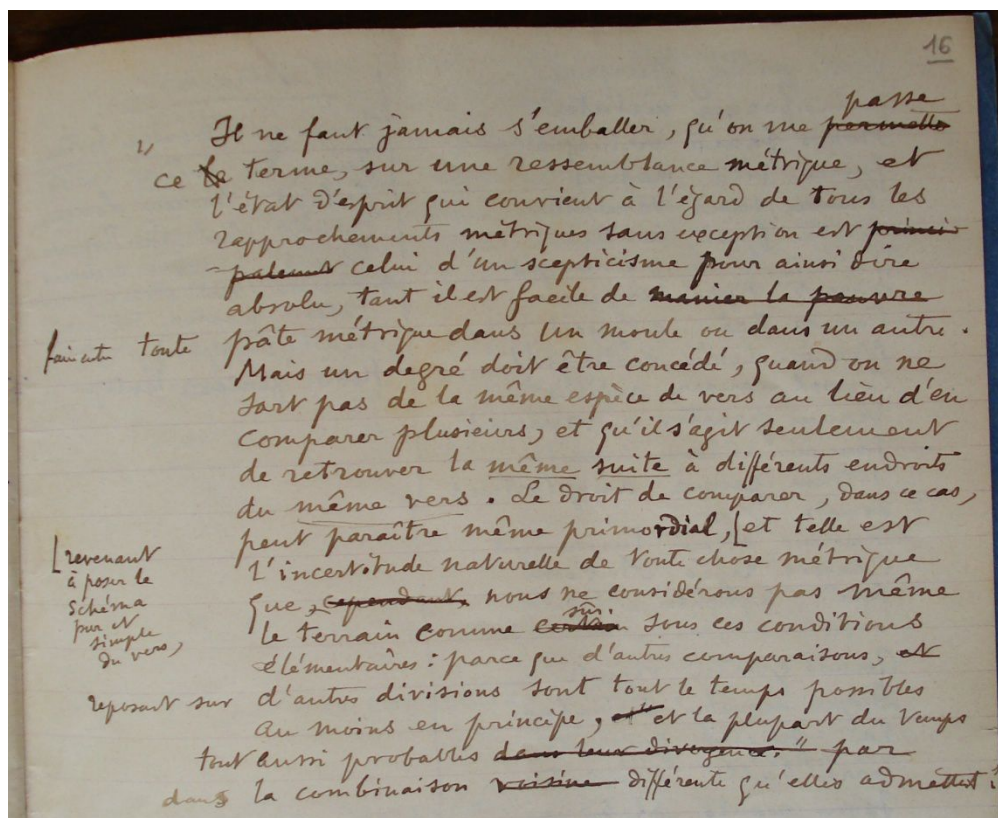 16
passe
" Il ne faut jamais s'emballer, qu'on me permette
ce le terme, sur une ressemblance métrique, et
l'état d'esprit qui convient à l'égard de tous les
rapprochements métriques sans exception est princi-
-palement celui d'un scepticisme pour ainsi dire
absolu, tant il est facile de manier la pauvre
faire entrer toute pâte métrique dans un moule ou dans un autre.
Mais un degré doit être concédé, quand on ne
sort pas de la même espèce de vers au lieu d'en
comparer plusieurs, et qu'il s'agit seulement
de retrouver la même suite à différents endroits
du même vers. Le droit de comparer, dans ce cas,
peut paraître même primordial, [et telle est
[revenant
à poser le
schéma
pur et
simple
du vers,
l'incertitude naturelle de toute chose métrique
que, cependant, nous ne considérons pas même
sûr
le terrain comme certain sous ces conditions
élémentaires : parce que d'autres comparaisons, et
reposant sur d'autres divisions sont tout le temps possibles
au moins en principe, et la plupart du temps
tout aussi probables dans leur divergence." par
dans la combinaison voisine différente qu'elles admettent